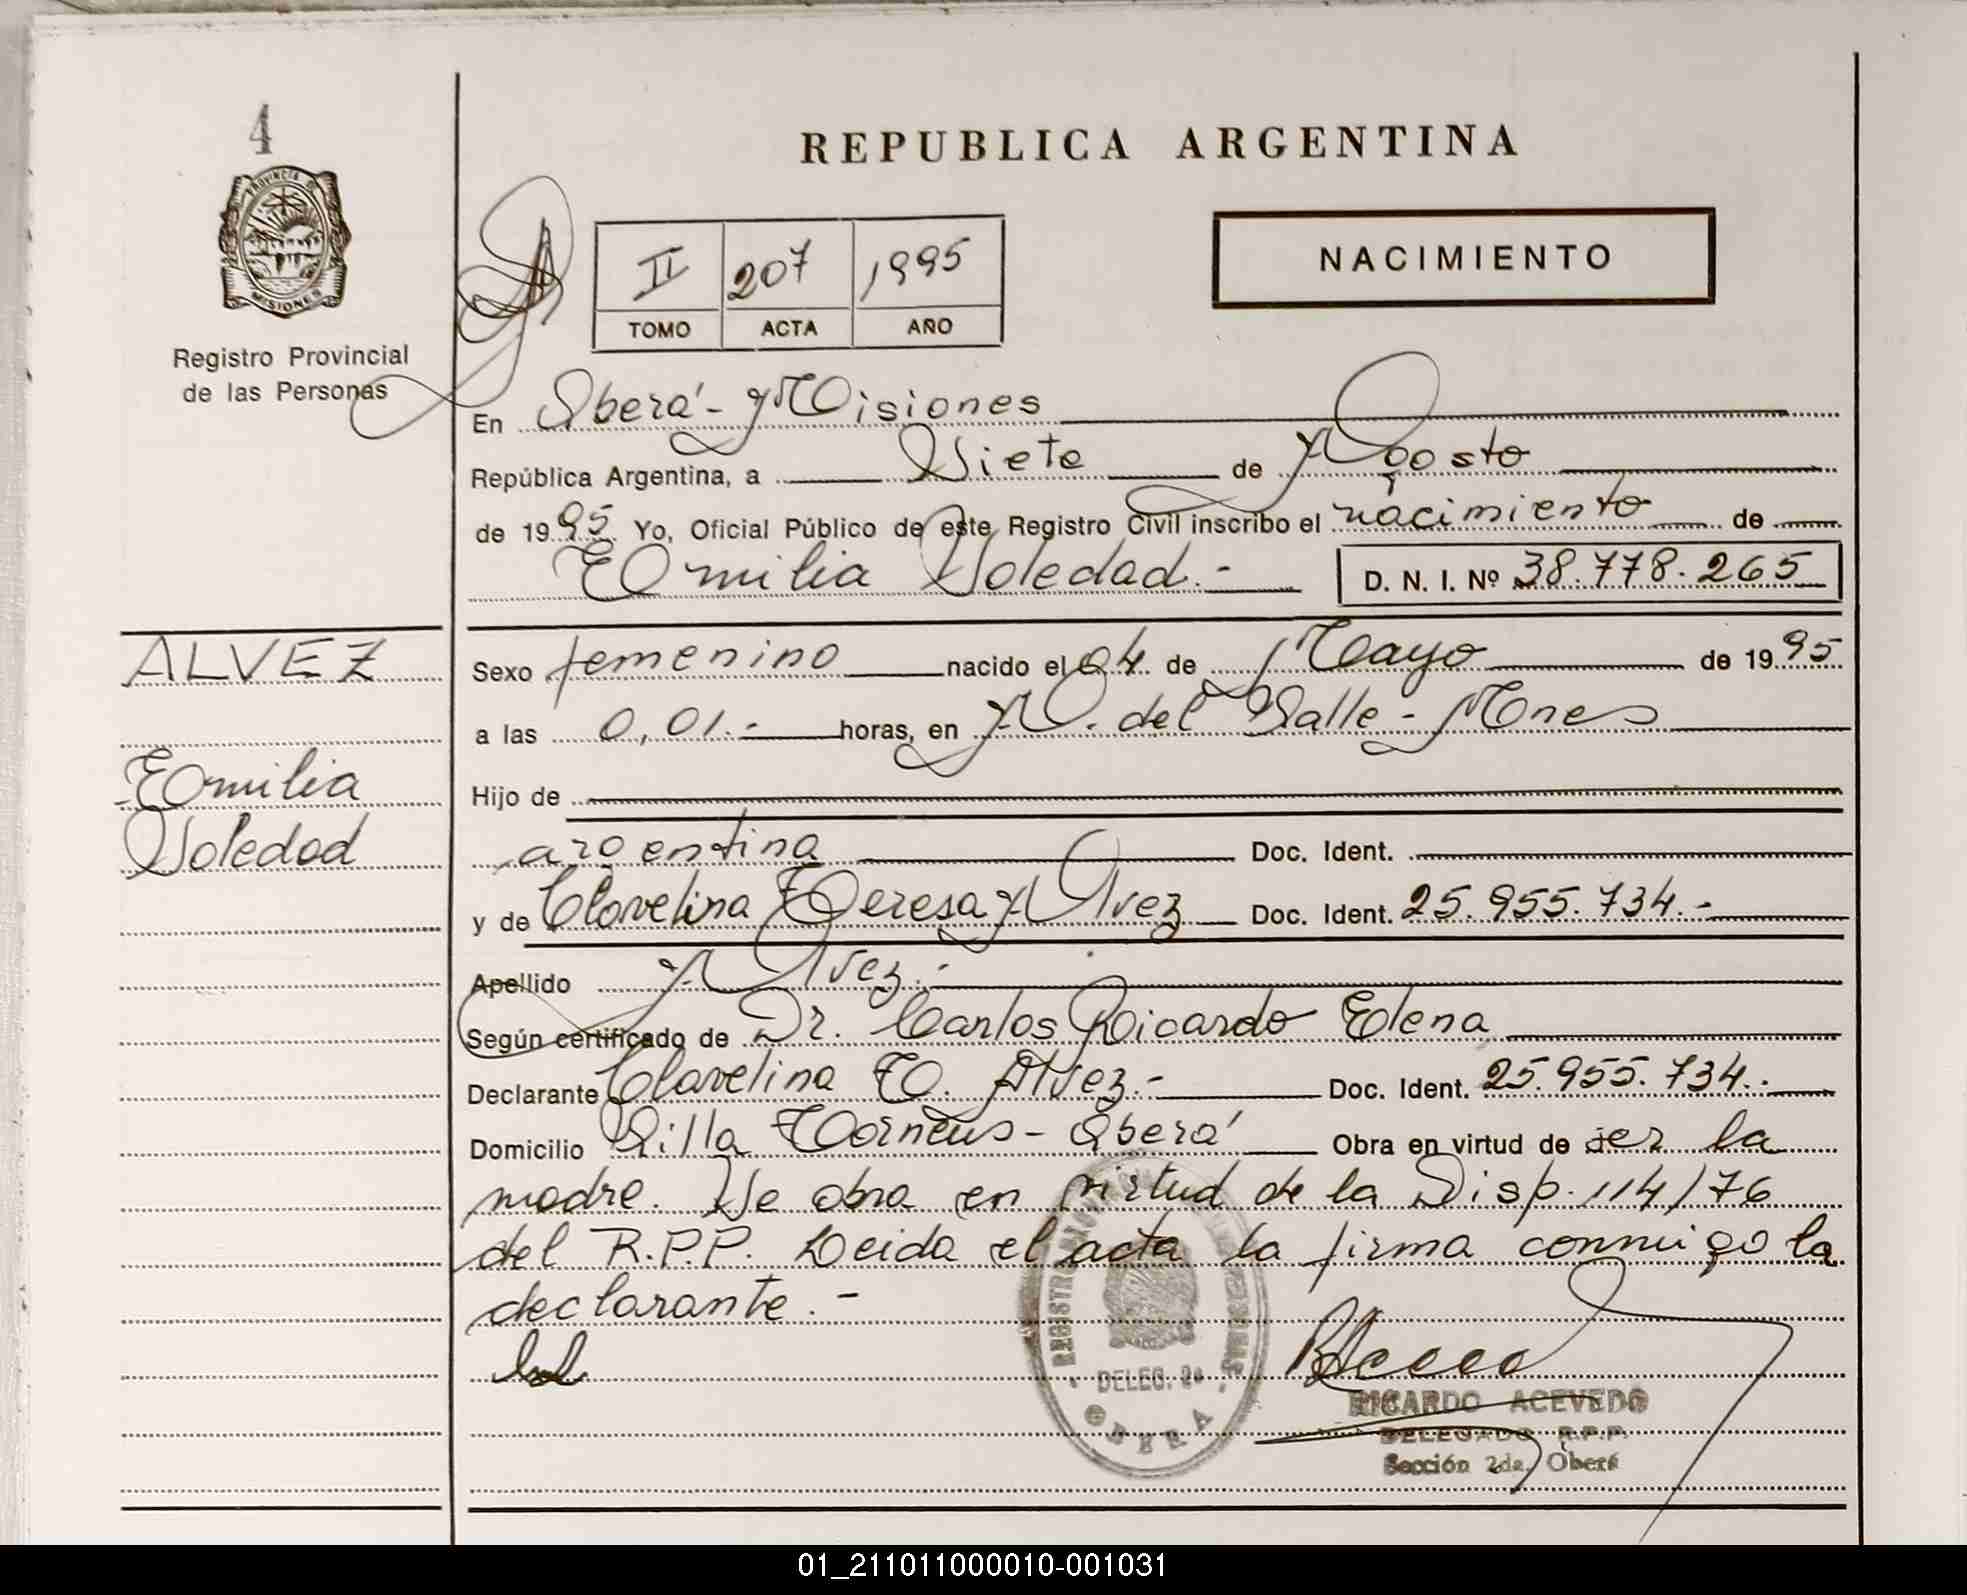 4
PROVINCIA D
MISIONES
Registro Provincial
de las Personas
REPUBLICA ARGENTINA
II 207 1995
TOMO ACTA AÑO
NACIMIENTO
En Oberá - Misiones
República Argentina, a Siete de Agosto
de 1995 Yo, Oficial Público de este Registro Civil inscribo el nacimiento de
Emilia Soledad.- D. N. I. Nº 38.778.265
ALVEZ
Emilia
Soledad
Sexo femenino nacido el 04 de Mayo de 1995
a las 0,01.- horas, en A. del Valle - Mnes
Hijo de
argentina Doc. Ident.
y de Clavelina Teresa Alvez Doc. Ident. 25.955.734.-
Apellido Alvez.-
Según certificado de Dr. Carlos Ricardo Elena
Declarante Clavelina T. Alvez.- Doc. Ident. 25.955.734.-
Domicilio Villa - Oberá Obra en virtud de ser la
madre. Se obra en virtud de la Disp. 114/76
del R.P.P. Leida el acta la firma conmigo la
declarante.-
DELEG. 2a
OBERA
RICARDO ACEVEDO
DELEGADO R.P.P.
Sección 2da. Oberá
01_211011000010-001031